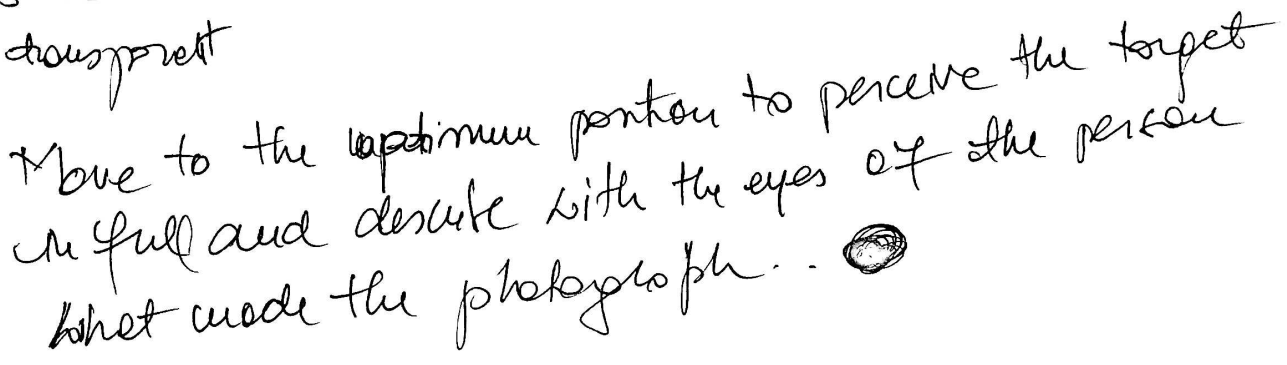 transparent
Move to the optimum position to perceive the target
in full and describe with the eyes of the person
what made the photograph...